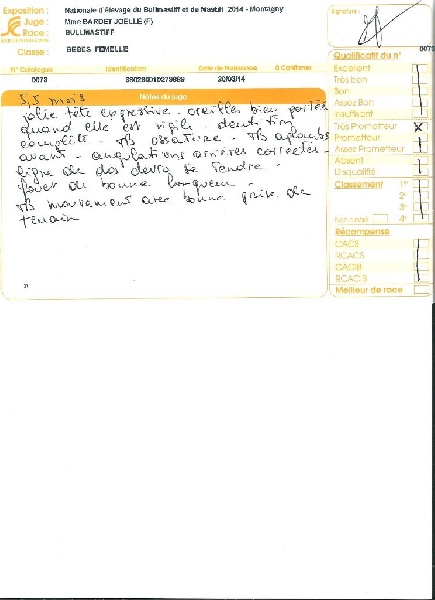 Exposition : Nationale d'élevage du Bullmastiff et du Mastiff 2014 - Montagny
Juge : Mme BARDET JOELLE (F)
Race : BULLMASTIFF
Classe : BEBES FEMELLE
N° Catalogue Identification Date de Naissance A Confirmer
0073 20/03/14
Notes du juge
5,5 mois
jolie tête expressive - oreilles bien portées
quand elle est vigile - dentition
complète - TB ossature - TB aplombs
avant - angulations arrières correctes -
ligne de dos devra se tendre -
fouet de bonne longueur -
TB mouvement avec bonne prise de
terrain
Signature :
0073
Qualificatif du n°
Excellent
Très bon
Bon
Assez Bon
Insuffisant
Très Prometteur X
Prometteur
Assez Prometteur
Absent
Disqualifié
Classement 1er
2e
3e
Non classé 4e
Récompense
CACS
RCACS
CACIB
RCACIB
Meilleur de race